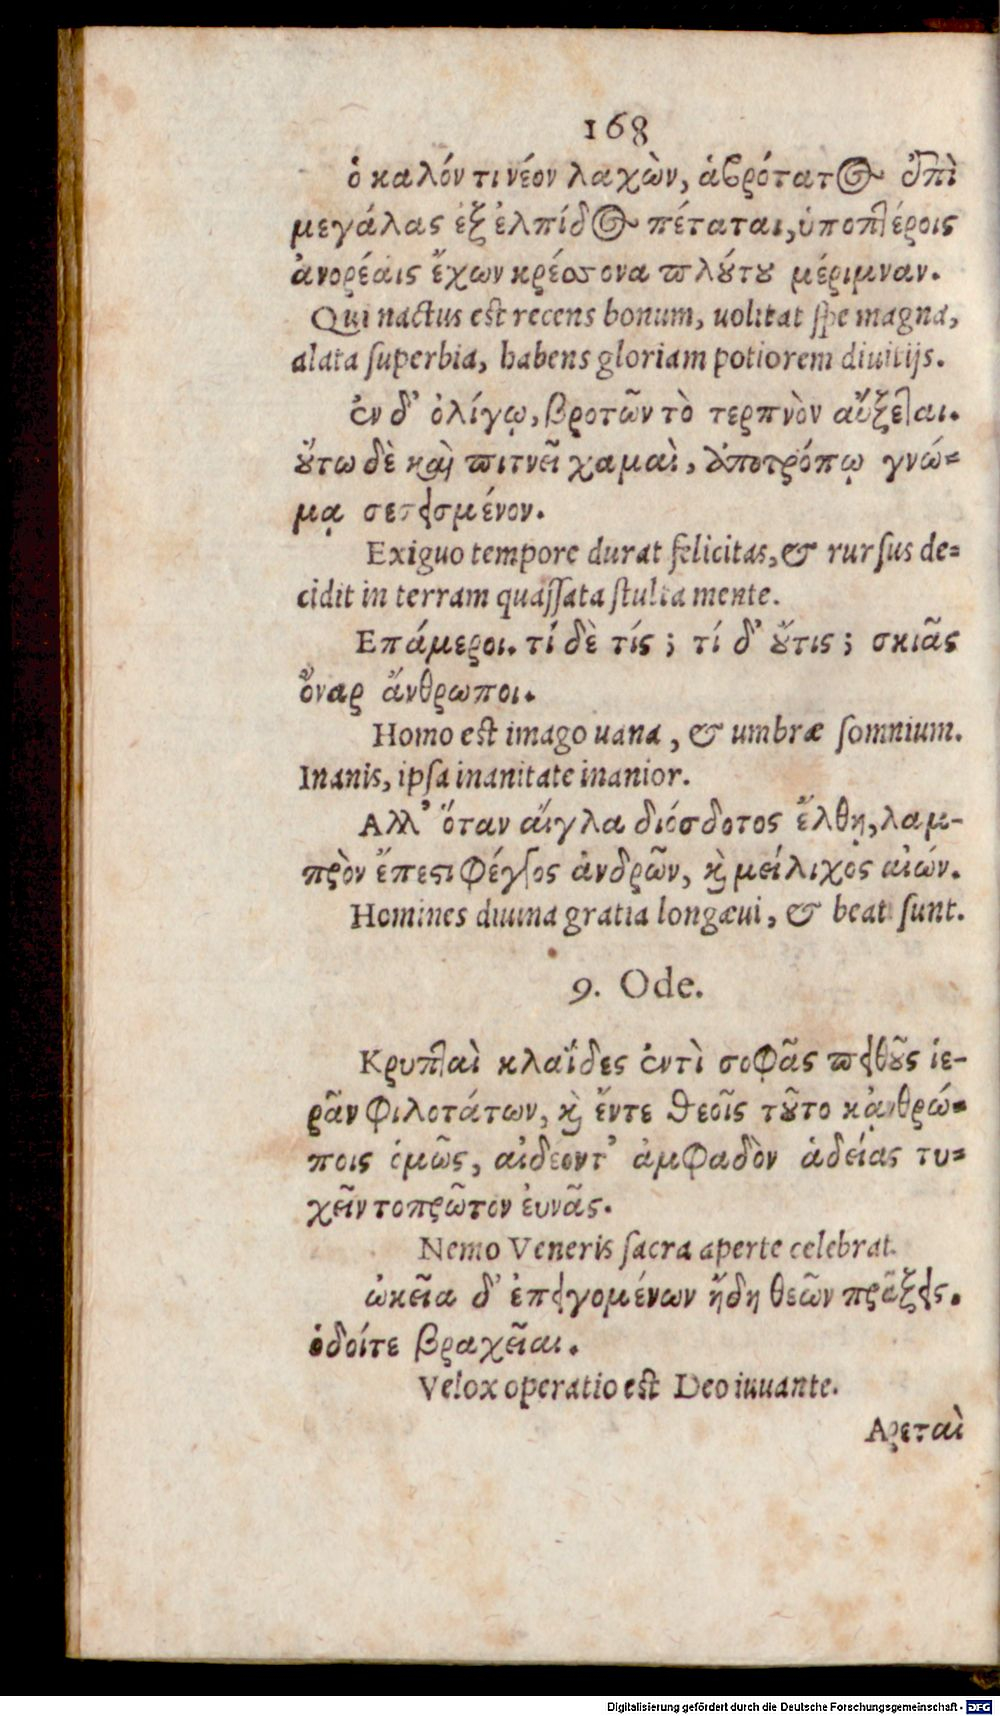 168
ὁ καλόν τι νέον λαχὼν, ἁβρότατος ἐπὶ
μεγάλας ἐξ ἐλπίδος πέταται, ὑποπτέροις
ἀνορέαις ἔχων κρέσσονα πλούτου μέριμναν.
Qui nactus est recens bonum, uolitat ſpe magna,
alata ſuperbia, habens gloriam potiorem diuitijs.
ἐν δ' ὀλίγῳ, βροτῶν τὸ τερπνὸν αὔξεται.
οὕτω δὲ καὶ πιτνεῖ χαμαὶ, ἀποτρόπῳ γνώ=
μᾳ σεσεισμένον.
Exiguo tempore durat felicitas, & rurſus de=
cidit in terram quaſſata ſtulta mente.
Επάμεροι. τί δὲ τίς; τί δ' οὔτις; σκιᾶς
ὄναρ ἄνθρωποι.
Homo est imago uana, & umbræ ſomnium.
Inanis, ipſa inanitate inanior.
Αλλ' ὅταν αἴγλα διόσδοτος ἔλθῃ, λαμ-
πρὸν ἔπεστι φέγγος ἀνδρῶν, καὶ μείλιχος αἰών.
Homines diuina gratia longæui, & beati ſunt.
9. Ode.
Κρυπταὶ κλαΐδες ἐντὶ σοφᾶς πειθοῦς ἱε-
ρᾶν φιλοτάτων, καὶ ἔντε θεοῖς τοῦτο κᾀνθρώ=
ποις ὁμῶς, αἰδέοντ' ἀμφαδὸν ἁδείας τυ=
χεῖν τοπρῶτον ἐυνᾶς.
Nemo Veneris ſacra aperte celebrat.
ὠκεῖα δ' ἐπειγομένων ἤδη θεῶν πρᾶξεις.
ὁδοίτε βραχεῖαι.
Velox operatio est Deo iuuante.
Αρεταὶ
Digitalisierung gefördert durch die Deutsche Forschungsgemeinschaft - DFG